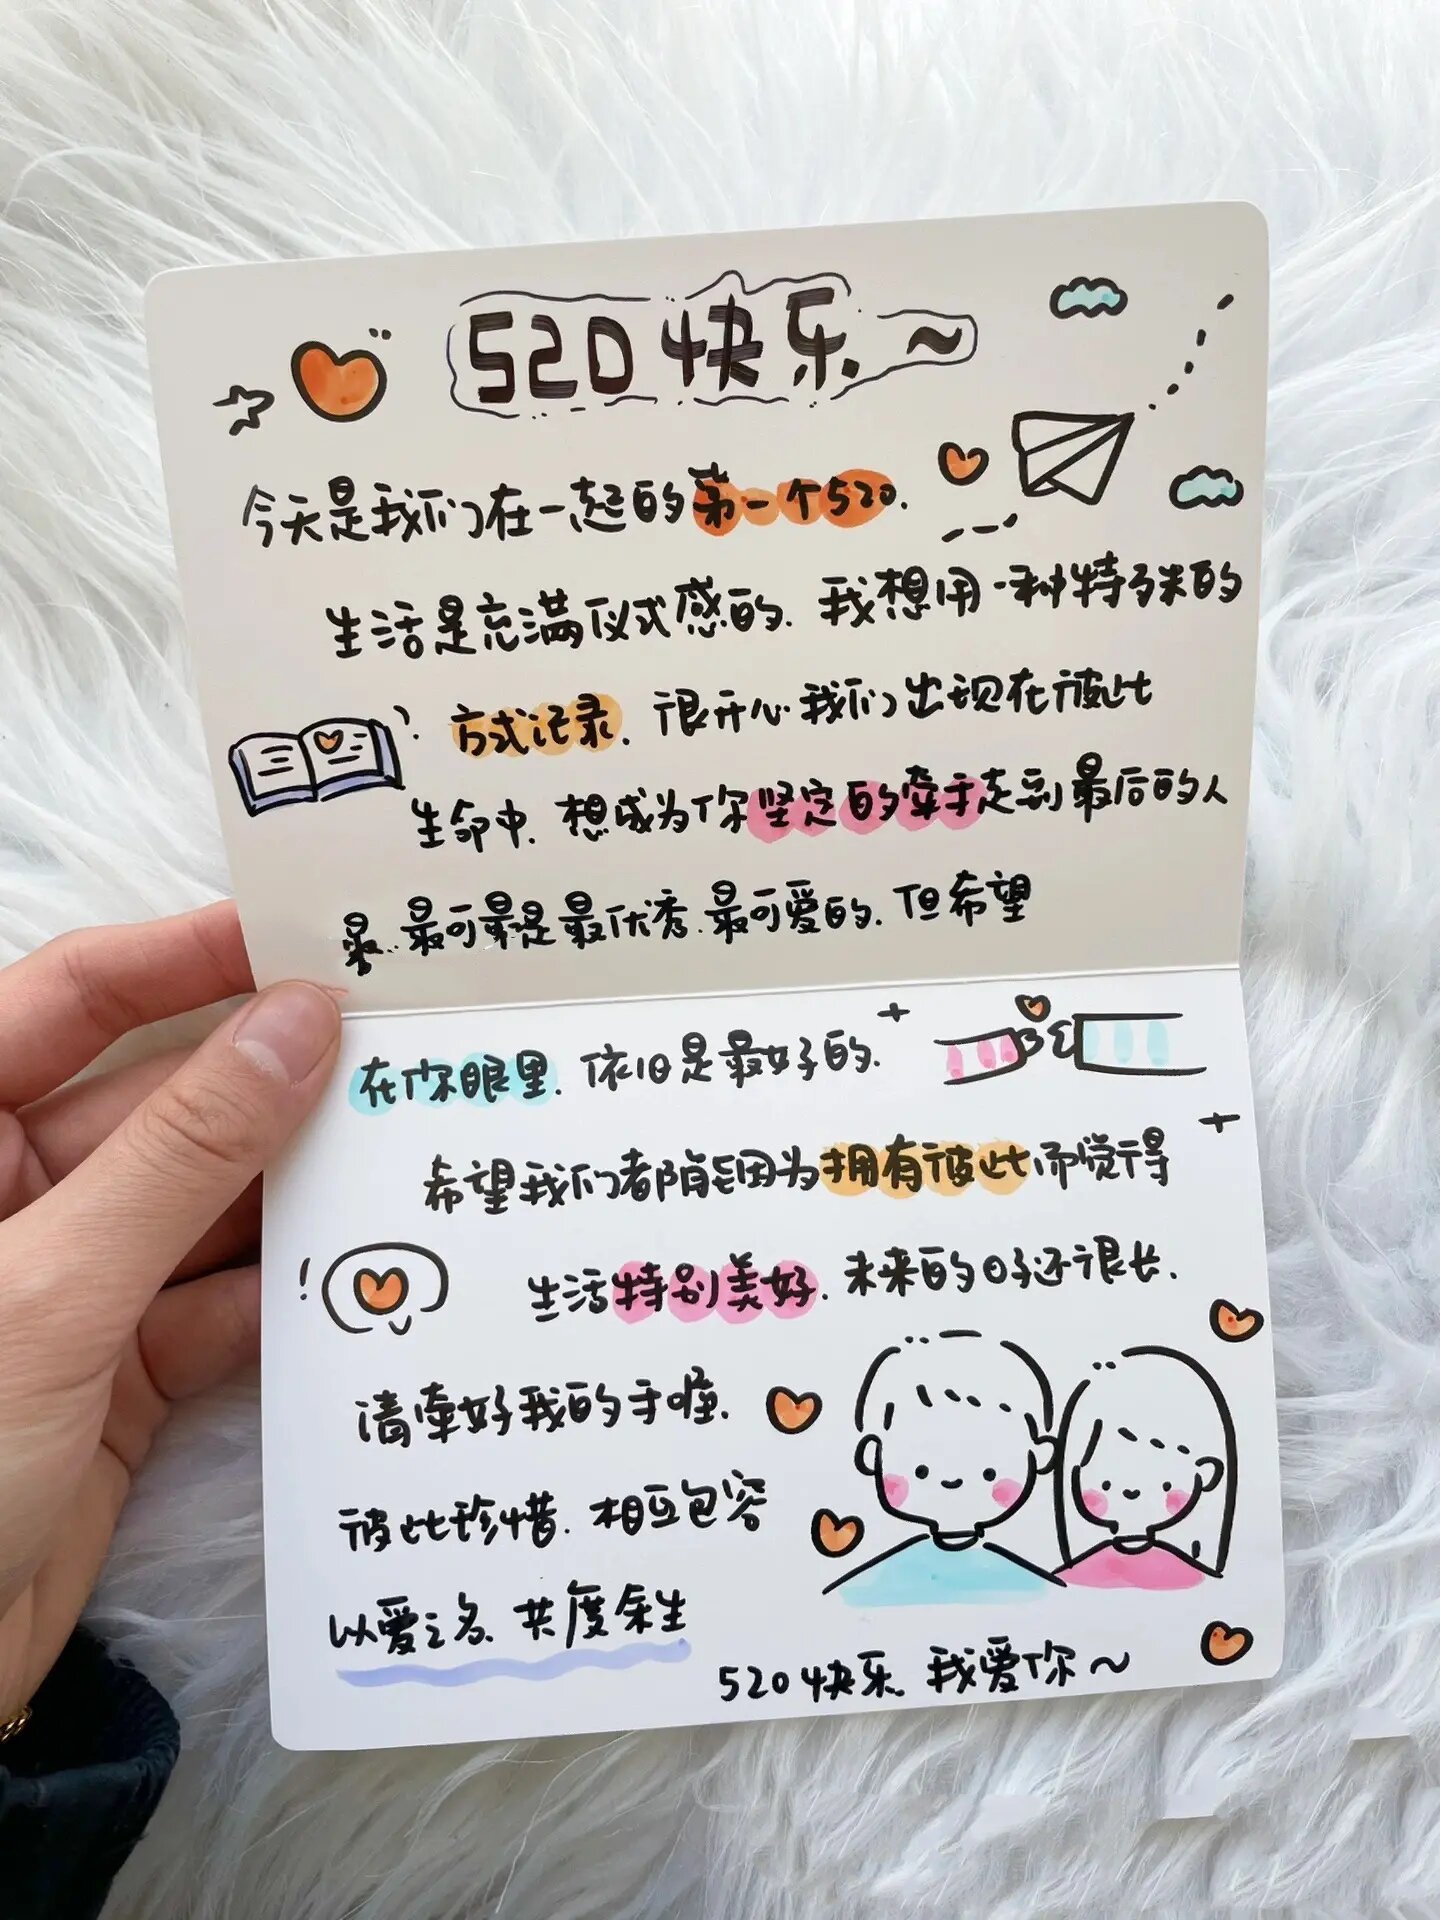 520快乐~
今天是我们在一起的第一个520.
生活是充满仪式感的.我想用一种特殊的
方式记录.很开心我们出现在彼此
生命中.想成为你坚定的牵手走到最后的人
最可是最优秀.最可爱的.但希望
在你眼里.依旧是最好的.
希望我们都能因为拥有彼此而觉得
生活特别美好.未来的日子还很长.
请牵好我的手喔.
彼此珍惜.相互包容
以爱之名.共度余生
520快乐.我爱你~